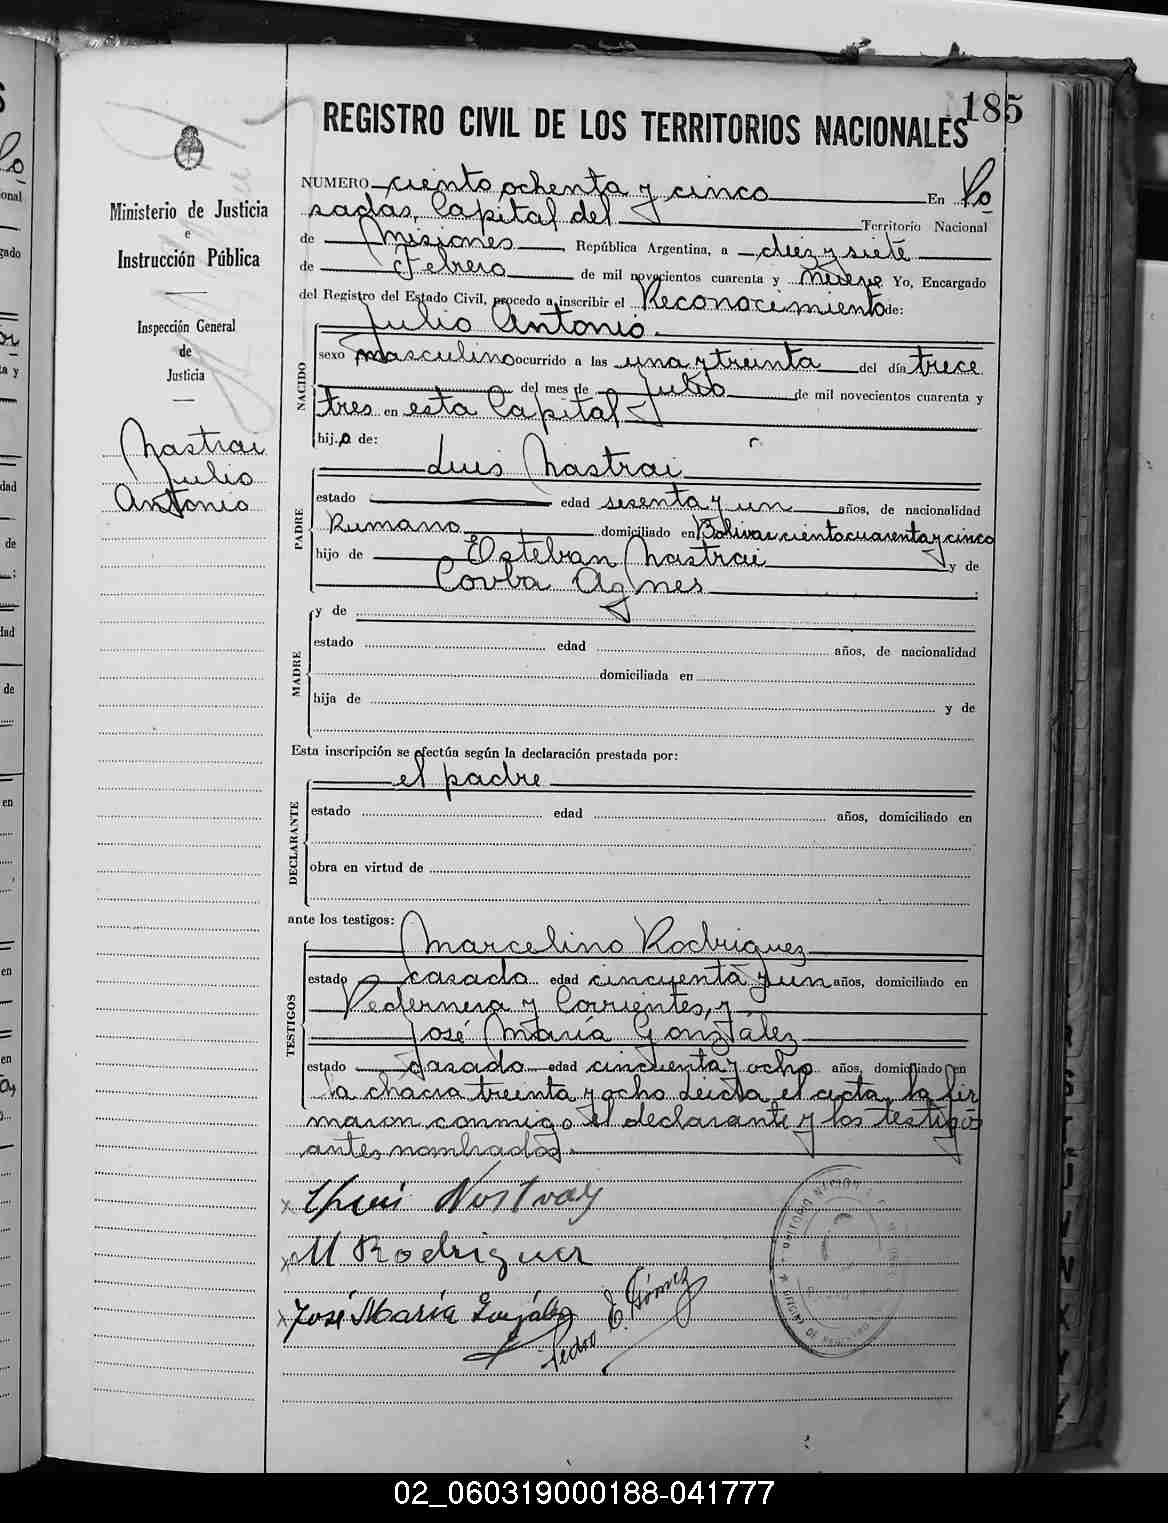 185
REGISTRO CIVIL DE LOS TERRITORIOS NACIONALES
Ministerio de Justicia
e
Instrucción Pública
Inspección General
de
Justicia
Nastrai
Julio
Antonio
NUMERO ciento ochenta y cinco En Po
sadas, Capital del Territorio Nacional
de Misiones República Argentina, a diez y siete
de Febrero de mil novecientos cuarenta y nueve Yo, Encargado
del Registro del Estado Civil, procedo a inscribir el Reconocimiento de:
Julio Antonio
NACIDO
sexo masculino ocurrido a las una y treinta del día trece
del mes de Julio de mil novecientos cuarenta y
tres en esta Capital
hijo de:
Luis Nastrai
PADRE
estado edad sesenta y un años, de nacionalidad
Rumano domiciliado en Bolivar ciento cuarenta y cinco
hijo de Esteban Nastrai y de
Covba Agnes
MADRE
y de
estado edad años, de nacionalidad
domiciliada en
hija de y de
Esta inscripción se efectúa según la declaración prestada por:
el padre
DECLARANTE
estado edad años, domiciliado en
obra en virtud de
ante los testigos:
Marcelino Rodriguez
TESTIGOS
estado casado edad cincuenta y un años, domiciliado en
Pedernera y Corrientes, y
José María González
estado casado edad cincuenta y ocho años, domiciliado en
la chacra treinta y ocho. Leida el acta, la fir
maron conmigo el declarante y los testigos
antes nombrados.
x Luis Nostray
x M Rodriguez
x José María González
Pedro E. Gómez
02_060319000188-041777